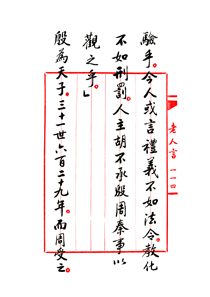 驗乎。今人或言禮義不如法令教化
不如刑罰。人主胡不承殷周秦事以
觀之乎。」
殷為天子。三十一世六百二十九年而周受之。
老人言 一一四